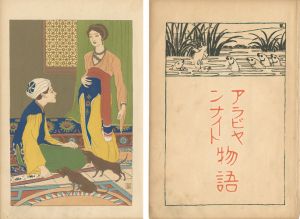 アラビヤ
ンナイト
物語